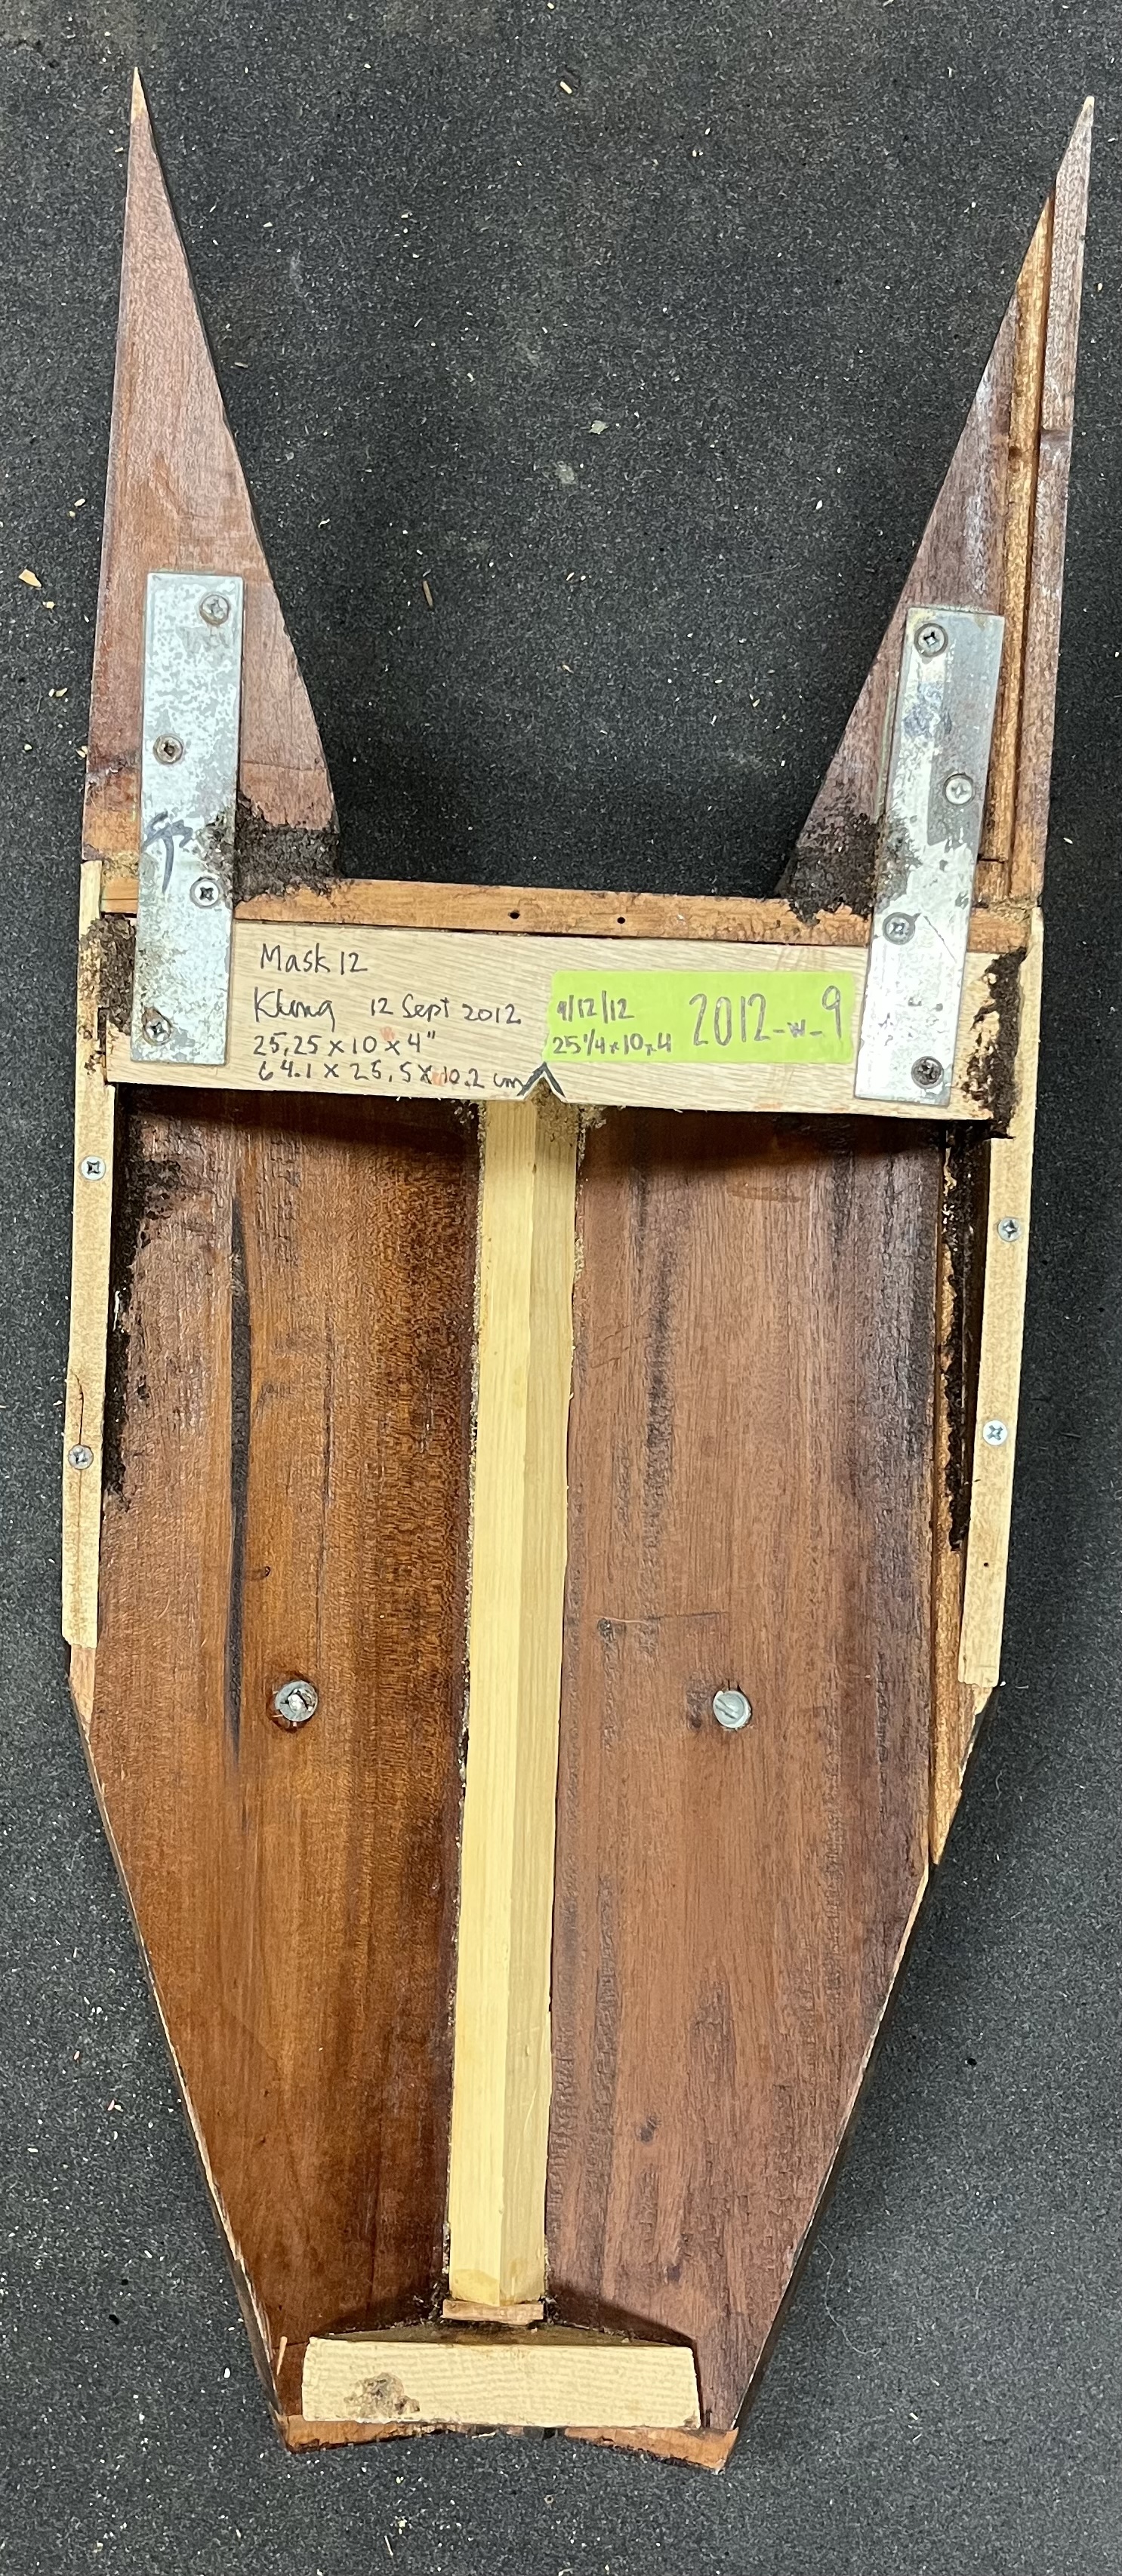 Mask 12
Klung 12 Sept 2012
25.25 x 10 x 4"
64.1 x 25.5 x 10.2 cm
9/12/12
25 1/4 x 10 x 4
2012-w-9